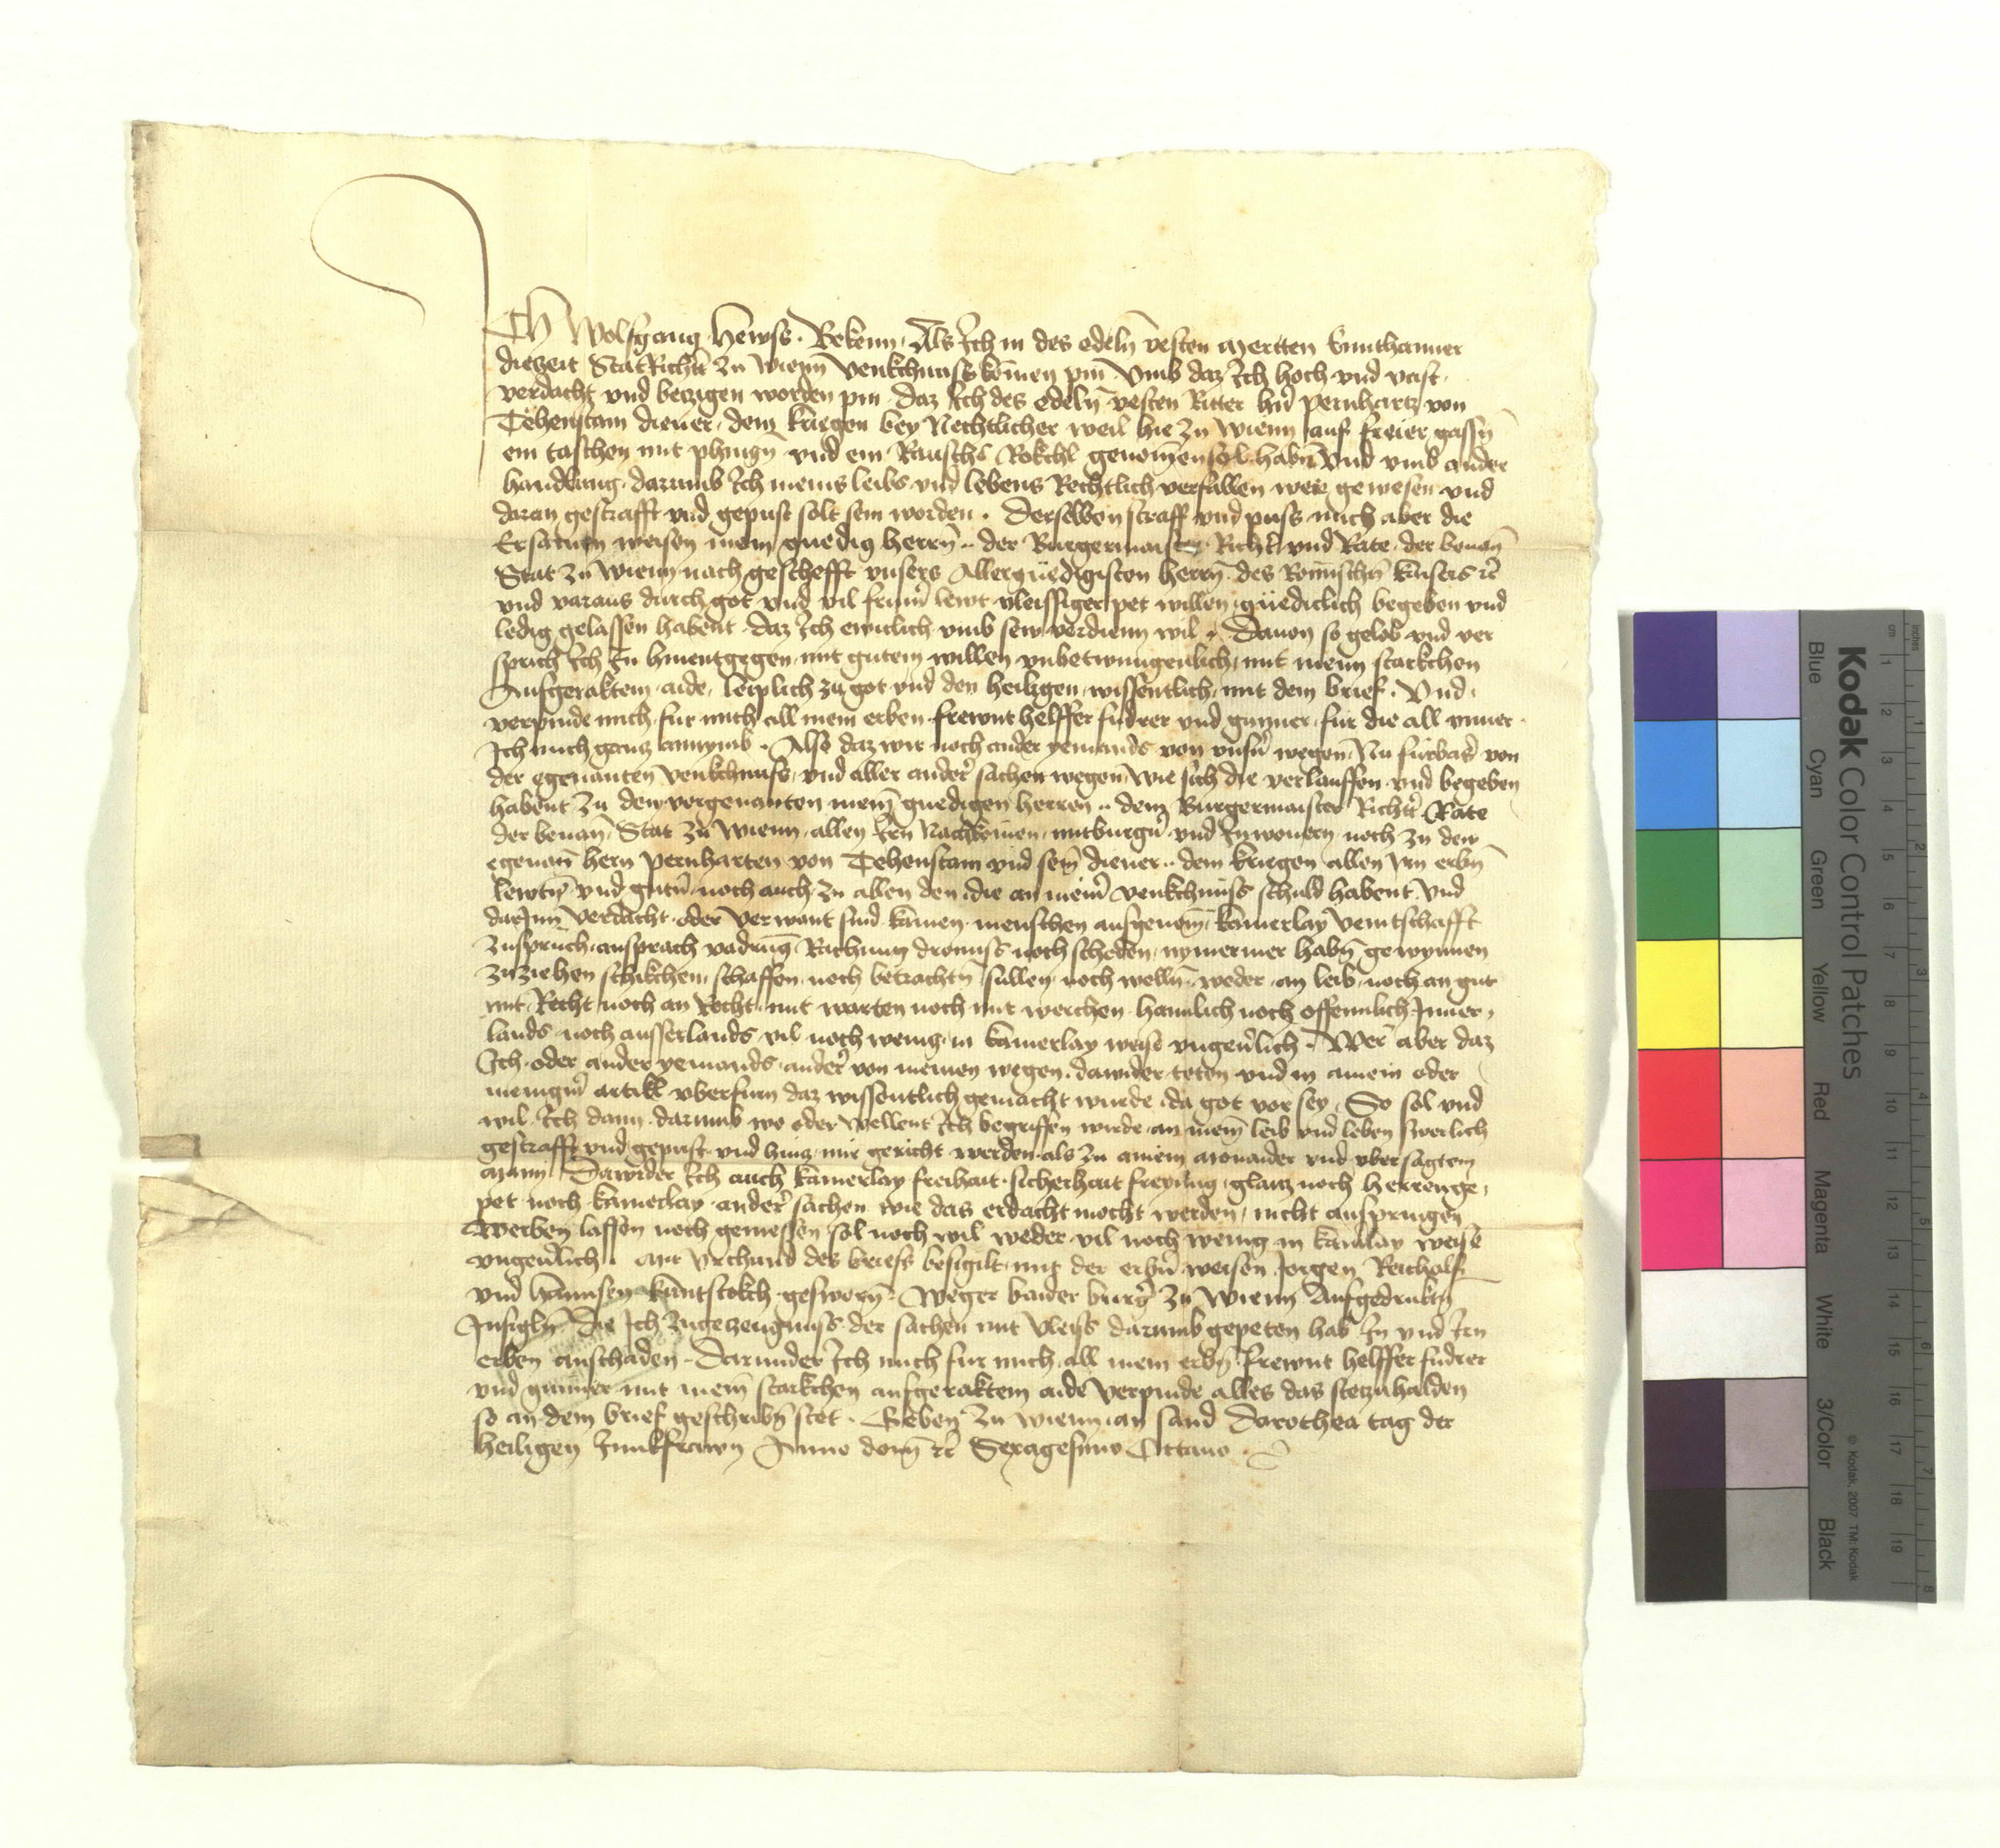 Ich Wolfgang Hewss. Bekenn, Als Ich in des edeln vesten Mertten Ennthaimer
diezeit StatRichtr̄ zu Wienn Venkchnuss kōmen pin Vmb daz Ich hoch vnd vast
verdacht vnd betzigen worden pin daz Ich des edeln vesten Ritter hn̄ pernhartz von
Tehenstain diener, dem kriegen bey Nechtlicher weil hie zu Wienn auf freier gassn̄
ein taschen mit phnign̄ vnd ein Rauschs Rokchl genomen sol habn̄ Vnd vmb ander
handlung, darumb Ich meins leibs vnd lebens Rechtlich verfallen wer gewesen vnd
daran gestrafft vnd gepust solt sein worden. Derselben straff vnd puss mich aber die
Ersamen weisen mein gnedig herrn̄ .. der Burgermaister Richtr̄ vnd Rate der benan̄
Stat zu Wienn nach gescheft vnsers Allergnedigisten herrn̄ des Romischn̄ kaisers rc̄
vnd voraus durch got vnd vil frumr̄ lewt vleissiger pet willen gnediclich begeben vnd
ledig gelassen habent daz Ich ewiclich vmb sew verdienn wil. Dauon so gelob vnd ver
sprich Ich In hinentgegen mit gutem willen vnbetwungenlich mit meinn starkchen
Aufgeraktem aide, leiplich zu got vnd den heiligen, wissentlich, mit dem brief. Vnd
verpinde mich fur mich all mein erben frewnt helffer fudrer vnd gunner, fur die all vnuer
Ich mich gantz annymb. Also daz wir noch ander yemands von vnsn̄ wegen Nu furbasr̄ von
der egenanten Venkchnuss, vnd aller andr̄ sachen wegen wie sich die verlauffen vnd begeben
habent zu den vorgenanten mein̄ gnedigen herren .. dem Burgermaister Richtr̄ Rate
der benan̄ Stat zu Wienn, allen Irn Nachkōmen, mitburgn̄ vnd Inwonern noch zu dem
egenan̄ hern Pernharten von Tehenstain vnd sein̄ diener .. dem kriegen allen Irn erbn̄
lewtn̄ vnd gutn̄ noch auch zu allen den, die an meinr̄ venkchnuss schuld habent vnd
darInn verdacht oder Verwant sind kainen menschen ausgenom̄, kainerlay Veintschafft
Zuspruch ansprach vodrung Rachung dronuss noch scheden, nymermer habn̄ gewynnen
zuziehen schikchen, schaffen noch betrachtn̄ sullen noch welln̄, weder an leib, noch an gut
mit Recht noch an Recht, mit warten noch mit werchen haimlich noch offennlich Inner,
lands noch ausserlands vil noch wenig, in kainerlay weise vngeuērlich. Wer aber daz
Ich oder ander yemands andr̄ von meinen wegen dawider teten vnd in aim ein oder
menigm̄ artikl vberfurn daz wissentlich gemacht wurde, da got vor sey, So sol vnd
wil Ich dann darumb wo oder wellent Ich begriffen wirde an mein̄ leib vnd leben swerlich
gestrafft vnd gepust vnd hintz mir gericht werden als zu ainem Monaider vnd vbersagtem
Mann Dawider Ich auch kainerlay freihait sicherhait freyung, glait noch herrenge,
pet noch kainerlay andr̄ sachen wie das erdacht mocht werden, nicht ausspringen
Werben lassen noch geniessen sol noch wil weder vil noch wenig in kainlay weise
vngeuērlich. Mit Vrchund des briefs besigilt mit der erbn̄ weisen Jorgen Reicholf
vnd hannsen kantstokch gesworn̄ Weger baider burgr̄ zu Wienn Aufgedrukten
Insigln̄ Die Ich Zugetzeugnuss der sachen mit vleiss darumb gepeten hab In vnd Irn
erben anschaden. Darunder Ich mich fur mich, all mein erbn̄ frewnt helffer fudrer
vnd gunner mit mein̄ starkchen aufgeraktem aide Verpinde alles das stetzuhalden
so an dem brief geschribn̄ stet. Geben zu Wienn an sand Dorothea tag der
heiligen Junkfrawn Anno dom̄ rc̄ Sexagesimo Octauo
Kodak Color Control Patches
Blue Cyan Green Yellow Red Magenta White 3/Color Black
© Kodak, 2007 TM: Kodak
cm 1 2 3 4 5 6 7 8 9 10 11 12 13 14 15 16 17 18 19
inches 1 2 3 4 5 6 7 8